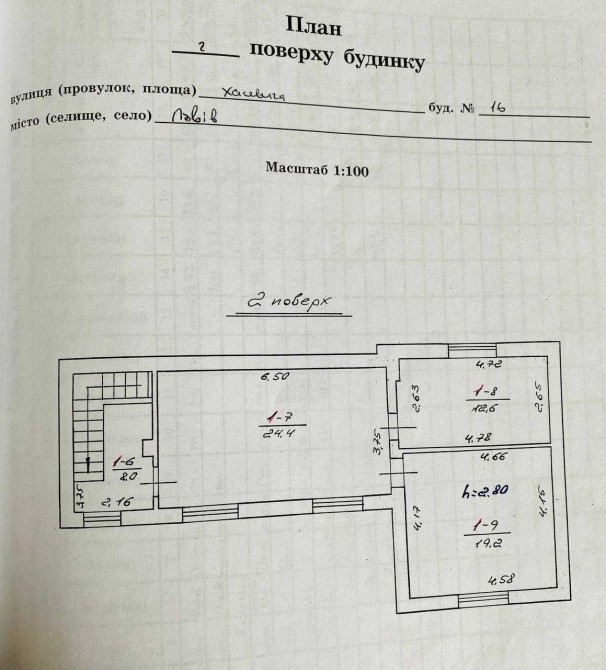 План
2 поверху будинку
вулиця (провулок, площа) Хасевича буд. № 16
місто (селище, село) Львів
Масштаб 1:100
2 поверх
6,50
1-7
24,4
3,75
1-6
8,0
3,75
2,16
4,72
2,63
1-8
12,6
2,65
4,78
4,66
h=2.80
4,17
4,15
1-9
19,2
4,58